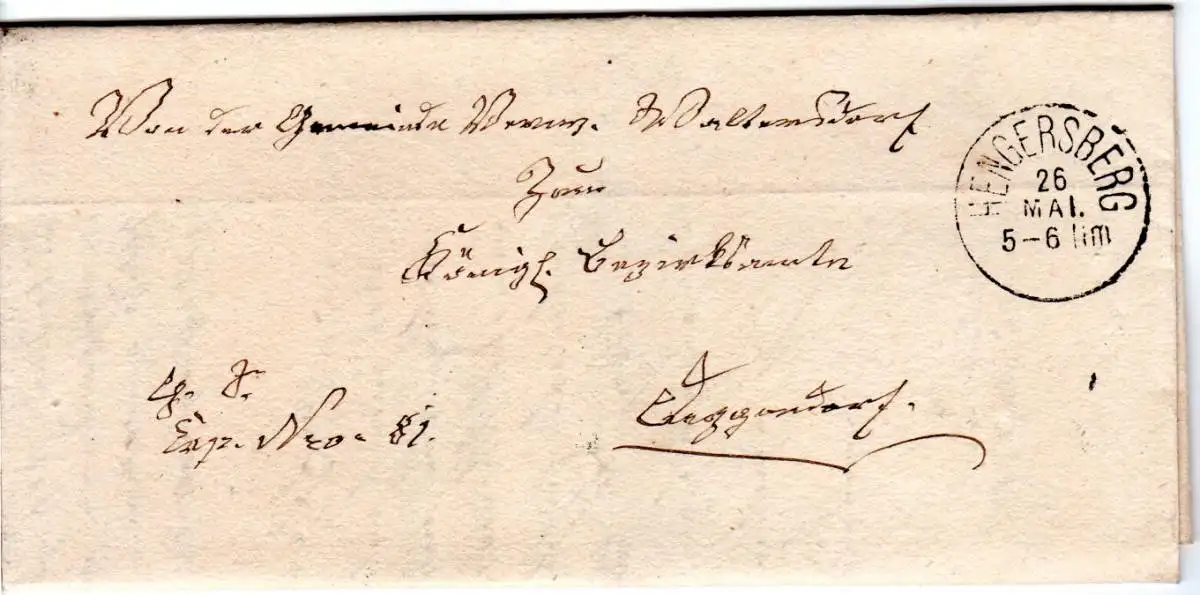 Von der Gemeinde Verw. Waltersdorf
HENGERSBERG
26
MAI.
5-6 Nm
Zum
Königl. Bezirksamte
Exp. Nro. 81.
Deggendorf.